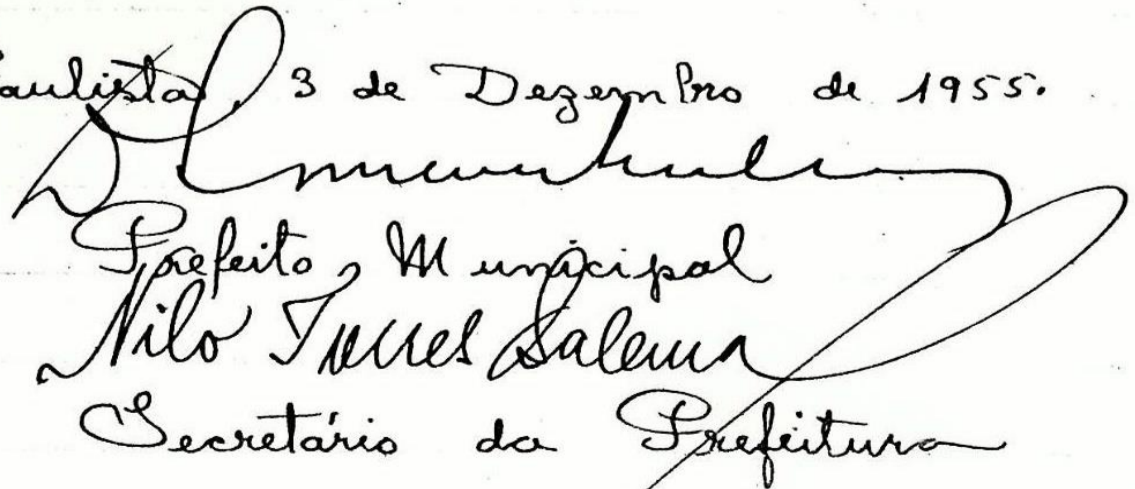 Paulista, 3 de Dezembro de 1955.
Prefeito Municipal
Nilo Torres Salema
Secretário da Prefeitura